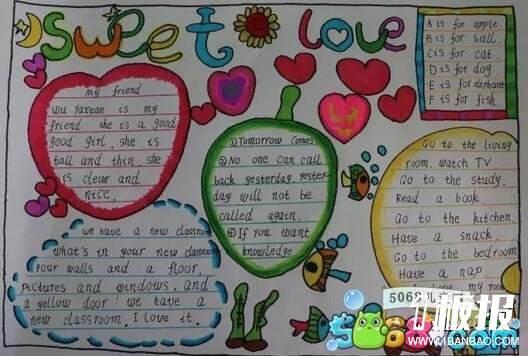 sweet love
My friend
Wu Yaxuan is my
friend she is a good
good girl. she is
tall and thin. she
is clever and
nice.
A is for apple
B is for ball.
C is for cat.
D is for dog
E is for elephant
F is for fish
①Tomorrow comes
②No one can call
back yesterday yester-
day will not be
called again.
④If you want
knowledge
Go to the living
room. watch TV
Go to the study.
Read a book
Go to the kitchen.
Have a snack.
Go to the bedroom
Have a nap
my room
we have a new classroom
what's in your new classroom
Four walls and a floor.
pictures and windows, and
a yellow door! we have a
new classroom. I love it.
5068儿
板报
WWW.1BANBAO.COM